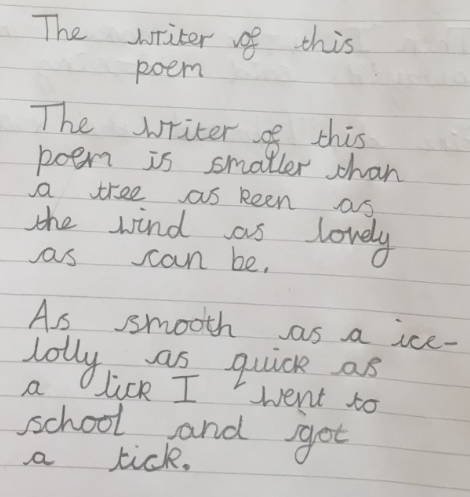 The writer of this
poem
The writer of this
poem is smaller than
a tree as keen as
the wind as lovely
as can be.
As smooth as a ice-
lolly as quick as
a lick I went to
school and got
a tick.